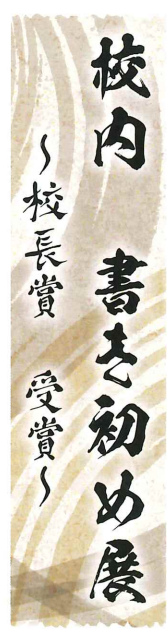 校内　書き初め展
〜校長賞　受賞〜